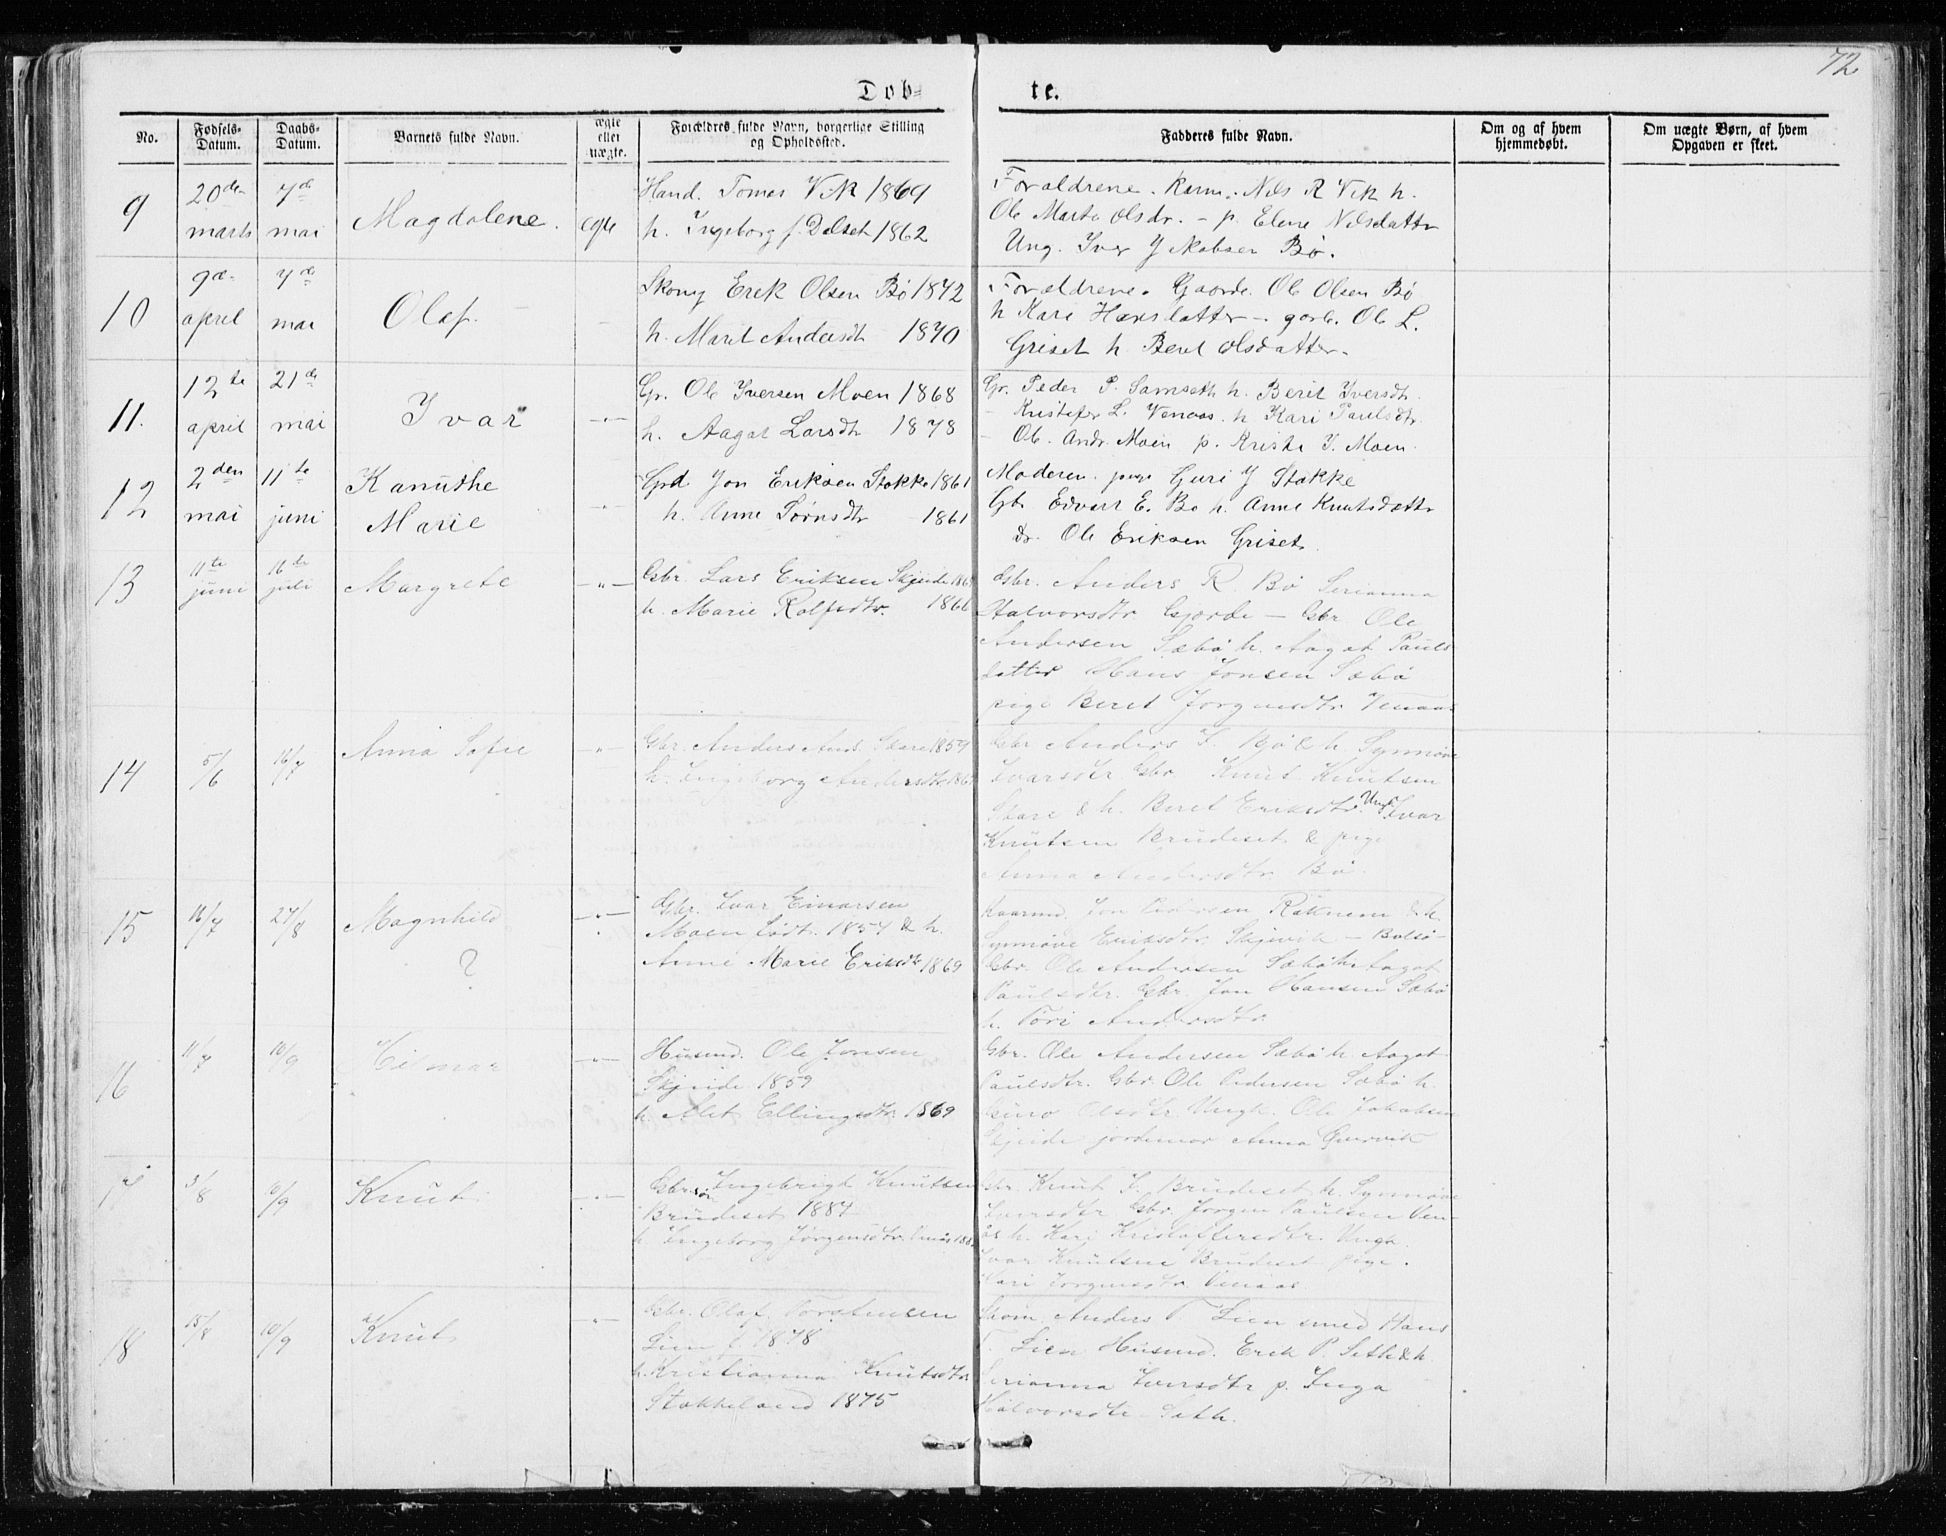 72
Døb- te.
No. Fødsels-Datum. Daabs-Datum. Barnets fulde Navn. ægte eller uægte. Forældres fulde Navn, borgerlige Stilling og Opholdssted. Fadderes fulde Navn. Om og af hvem hjemmedøbt. Om uægte Børn, af hvem Opgaven er skeet.
9 20de marts 7de mai Magdalene. egte
Hand. Tomas Vik 1869
h. Ingeborg f. Delset 1862
Forældrene. Kärm. Nils R Vik h.
Ole Marta Olsdr. - p. Elene Nilsdatter
Ung. Iver Jakobsen Bø.
10 9de april 7de mai Olaf. -
Skomg Erik Olsen Bø 1842
h. Marit Andersdt 1870
Forældrene. Gaardr. Ole Olsen Bø
h Kari Hansdatter - garb. Ole L.
Griset h. Beret Olsdatter.
11. 12te april 21de mai Ivar -"-
Gr. Ole Iversen Moen 1868
h. Aagot Larsdtr 1878
Gr. Peder P. Samseth h. Berit Iversdtr.
- Kristofer L. Venaas. h Kari Paulsdtr.
- Ole. Andr. Moen p. Kristi I. Moen.
12 2den mai 11te juni Kanuthe Marie -"-
Grd Jon Eriksen Stokke 1861
h. Anne Sørnsdtr - 1861
Moderen. pige Guri J Stokke
Gbr Edvart E. Bø h. Anne Knutsdattr
dr. Ole Eriksen Griset.
13 11te juni 16de juli Margrete -"-
Gbr. Lars Eriksen Skjeide
h. Marie Rolfsdtr. 1866
Gbr. Anders R. Bø Serianna
Halvorsdtr Gjærde - Gbr Ole
Andersen Sæbø h. Aagot Pauls
datter Hans Jonsen Sæbø
pige Beret Jørgensdtr Venaas
14 5/6 16/7 Anna Sofie -"-
Gbr. Anders And. Skare 1857
h. Ingeborg Andersdtr
Gbr Anders I. Bø & h. Synnøve
Ivarsdtr Gbr Knut Knutsen
Skare & h. Beret Eriksdtr. Ungk Ivar
Knutsen Brudeset & pige
Anna Andersdtr Bø.
15 16/7 27/8 Magnhild ? -"-
Gbr. Ivar Einarsen
Moen født. 1857 & h.
Anne Marie Eriksdtr 1869
Kaarmd. Jon Pedersen Røknem & h.
Synnøve Eriksdtr. Skjevik - Bolsø-
Gbr. Ole Andersen Sæbø h. Aagot
Paulsdtr. Gbr. Jon Hansen Sæbø
h. Tori Andersdtr.
16 11/7 10/9 Hilmar -"-
Husmd. Ole Jonsen
Skjeide 1859
h. Alet Ellingsdtr. 1869
Gbr. Ole Andersen Sæbø h. Aagot
Paulsdtr. Gbr. Ole Pedersen Sæbø h.
Olsdtr. Ungk. Ole Jakobsen
Skjeide jordmor Anna Øvervik
17 3/8 Knut -"-
Gbrsøn Ingebrigt Knutsen
Brudeset 1884
h Ingeborg Jørgensdtr.
Gbr. Knut I. Brudeset h. Synnøve
Iversdtr Gbr. Jørgen Paulsen Ven-
ås h. Kari Kristoffersdtr. Ungk.
Ivar Knutsen Brudeset pige.
Kari Jørgensdtr Venaas.
18 15/8 10/9 Knut -"-
Gbr. Olaf Torstensen
Lien f. 1878
h. Kristianna Knutsdtr
Stokkeland 1875
Skom Anders T Lien smed Hans
T. Lien Husmd. Erik P. Seth & h.
Serianna Iversdtr p. Inga
Halvorsdtr Seth.